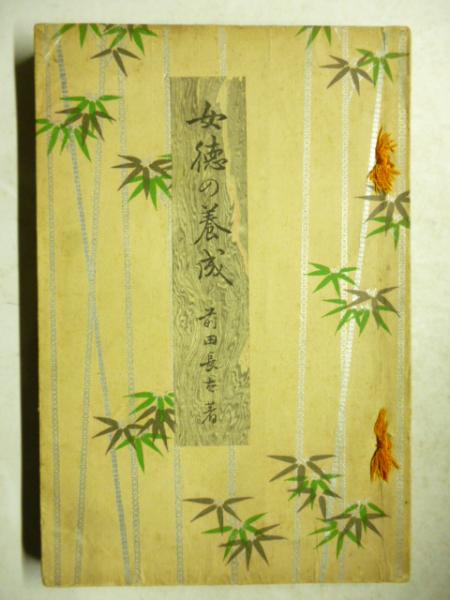 女徳の養成
前田長太著